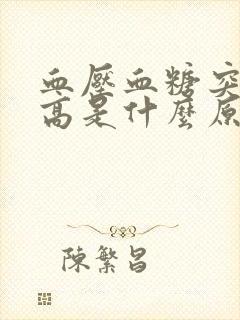 血壓血糖突
高是什麼原
陳繁昌